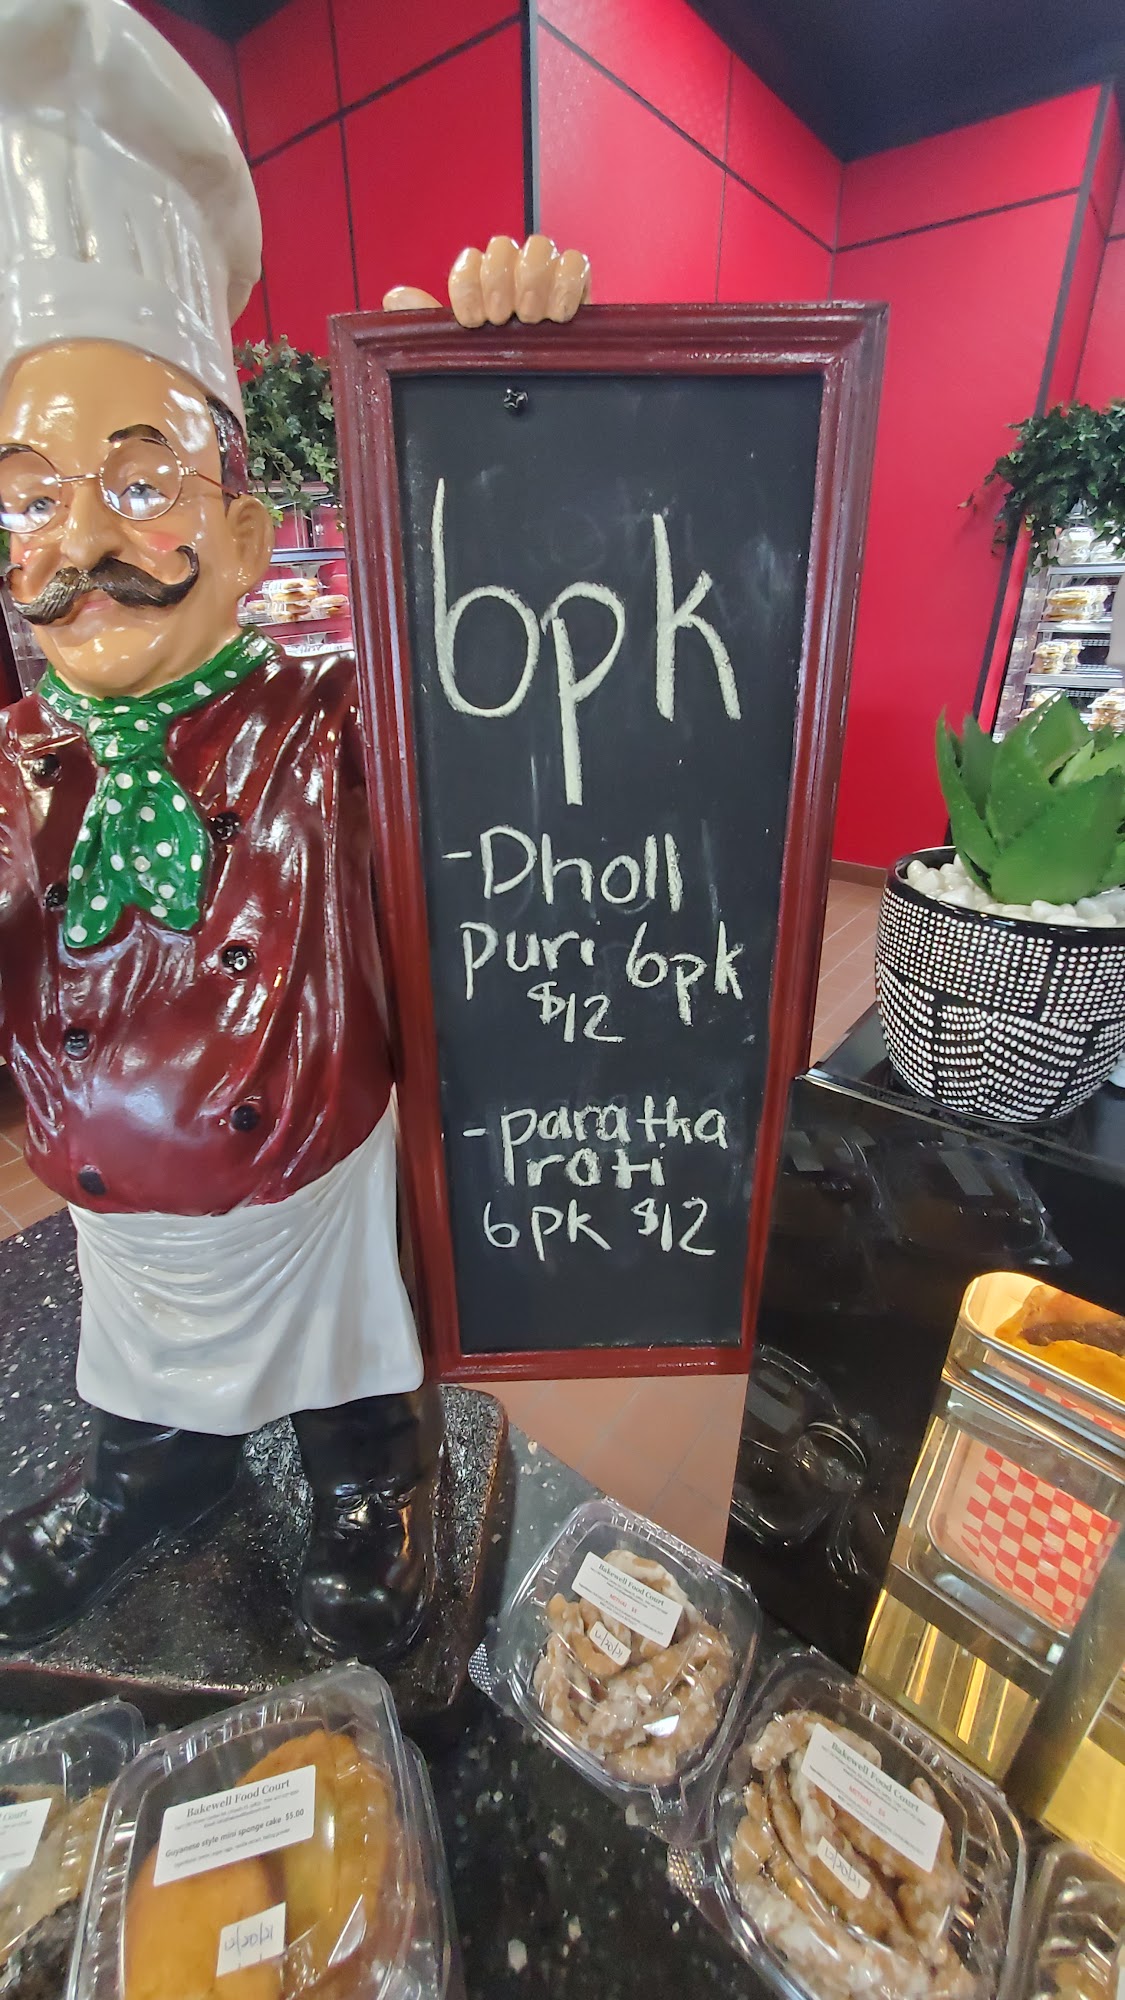 6pk
-Dholl
puri 6pk
$12
-paratha
roti
6pk $12
Bakewell Food Court
MITHAI $4
12/20/21
Bakewell Food Court
MITHAI $4
12/20/21
Bakewell Food Court
Guyanese style mini sponge cake $5.00
12/20/21
Court